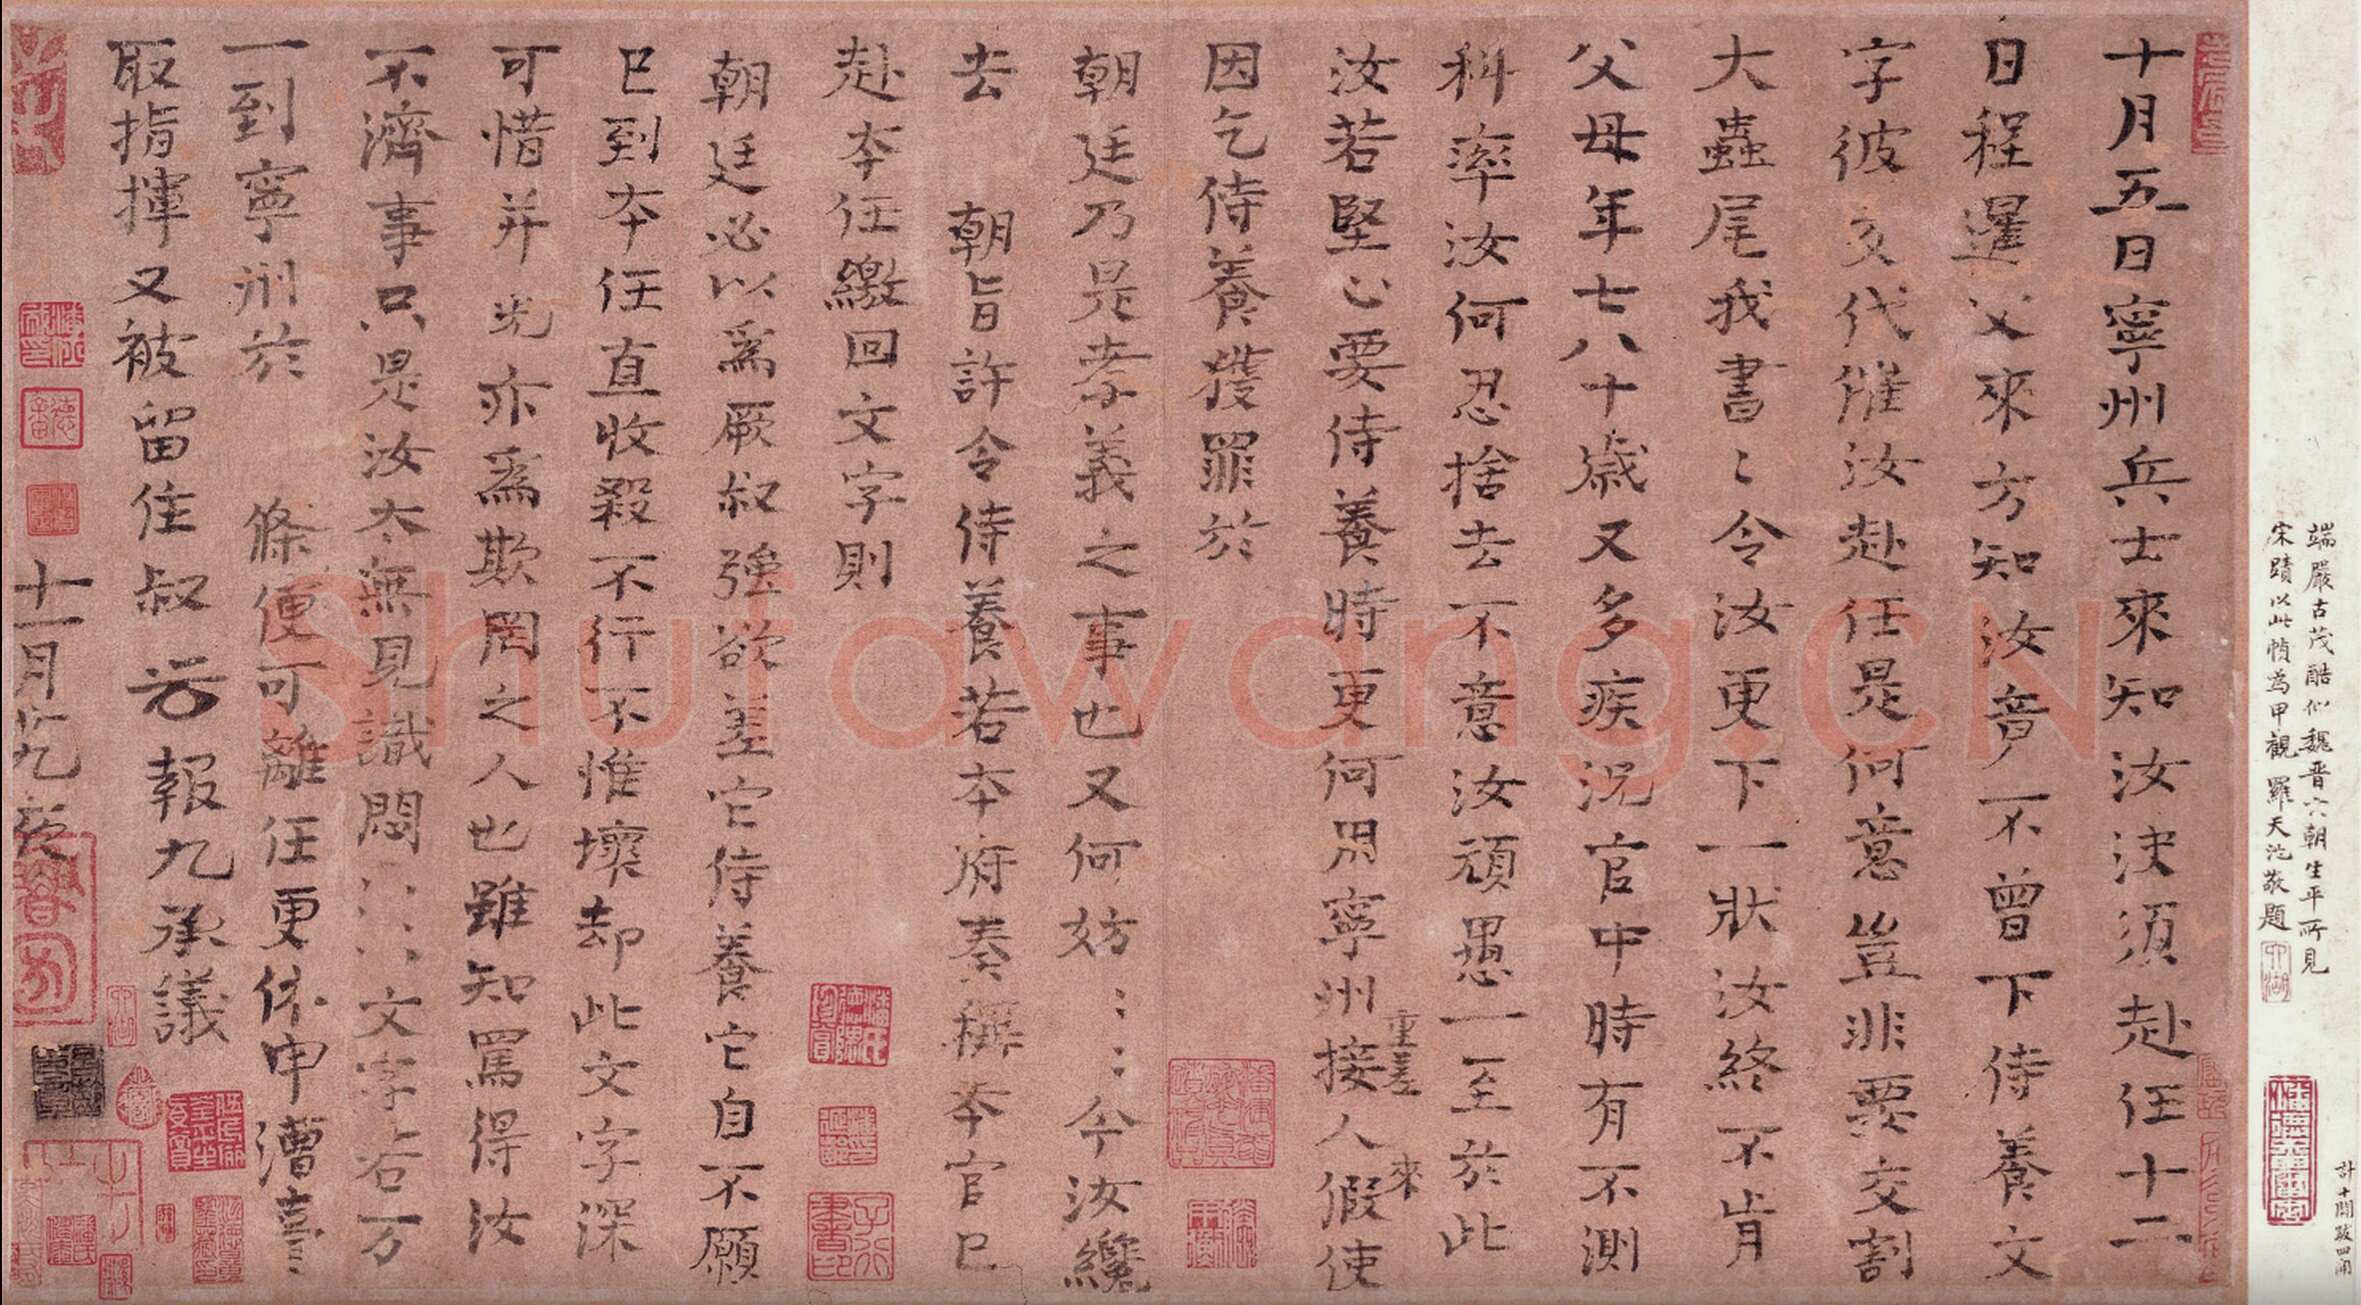 端嚴古茂酷似魏晋六朝生平所見
宋蹟以此幀為甲觀 羅天池敬題
計十開跋四開
十月五日寧州兵士來知汝決須赴任十二
日程暹父來方知汝竟不曾下侍養文
字彼交代催汝赴任是何意豈非要交割
大蟲尾我書〻令汝更下一狀汝終不肯
父母年七八十歲又多疾況官中時有不測
科率汝何忍捨去不意汝頑愚一至於此
重差 來
汝若堅心要侍養時更何用寧州接人假使
因乞侍養獲罪於
朝廷乃是孝義之事也又何妨〻〻今汝纔
去 朝旨許令侍養若本府奏稱本官已
赴本任繳回文字則
朝廷必以爲厥叔強欲差它侍養它自不願
已到本任直收殺不行不惟壞却此文字深
可惜并光亦爲欺罔之人也雖知罵得汝
不濟事只是汝太無見識悶〻〻文字右万
一到寧州於 條便可離任更休申漕臺
取指揮又被留住叔 光報九承議
十一月九夜
Shufawang.CN